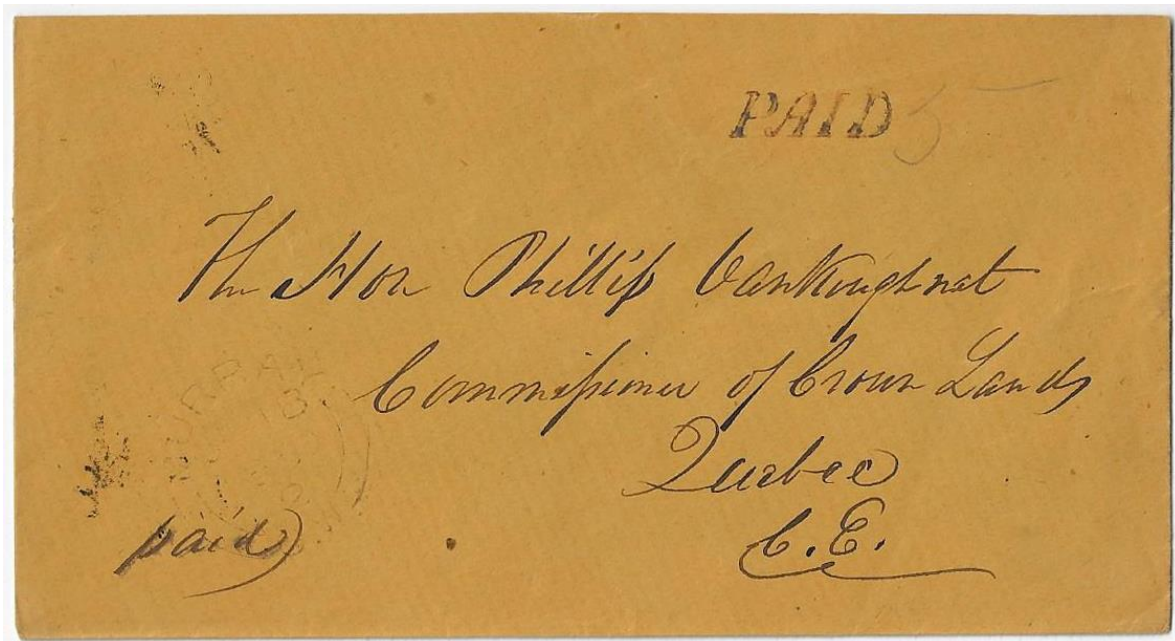 PAID 5
The Hon Phillip VanKoughnat
Commissioner of Crown Lands
Quebec
C.E.
MURRAY
13
paid